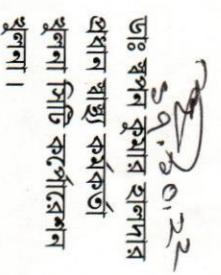 ১৭.১০.২২
ডাঃ স্বপন কুমার হালদার
প্রধান স্বাস্থ্য কর্মকর্তা
খুলনা সিটি কর্পোরেশন
খুলনা।